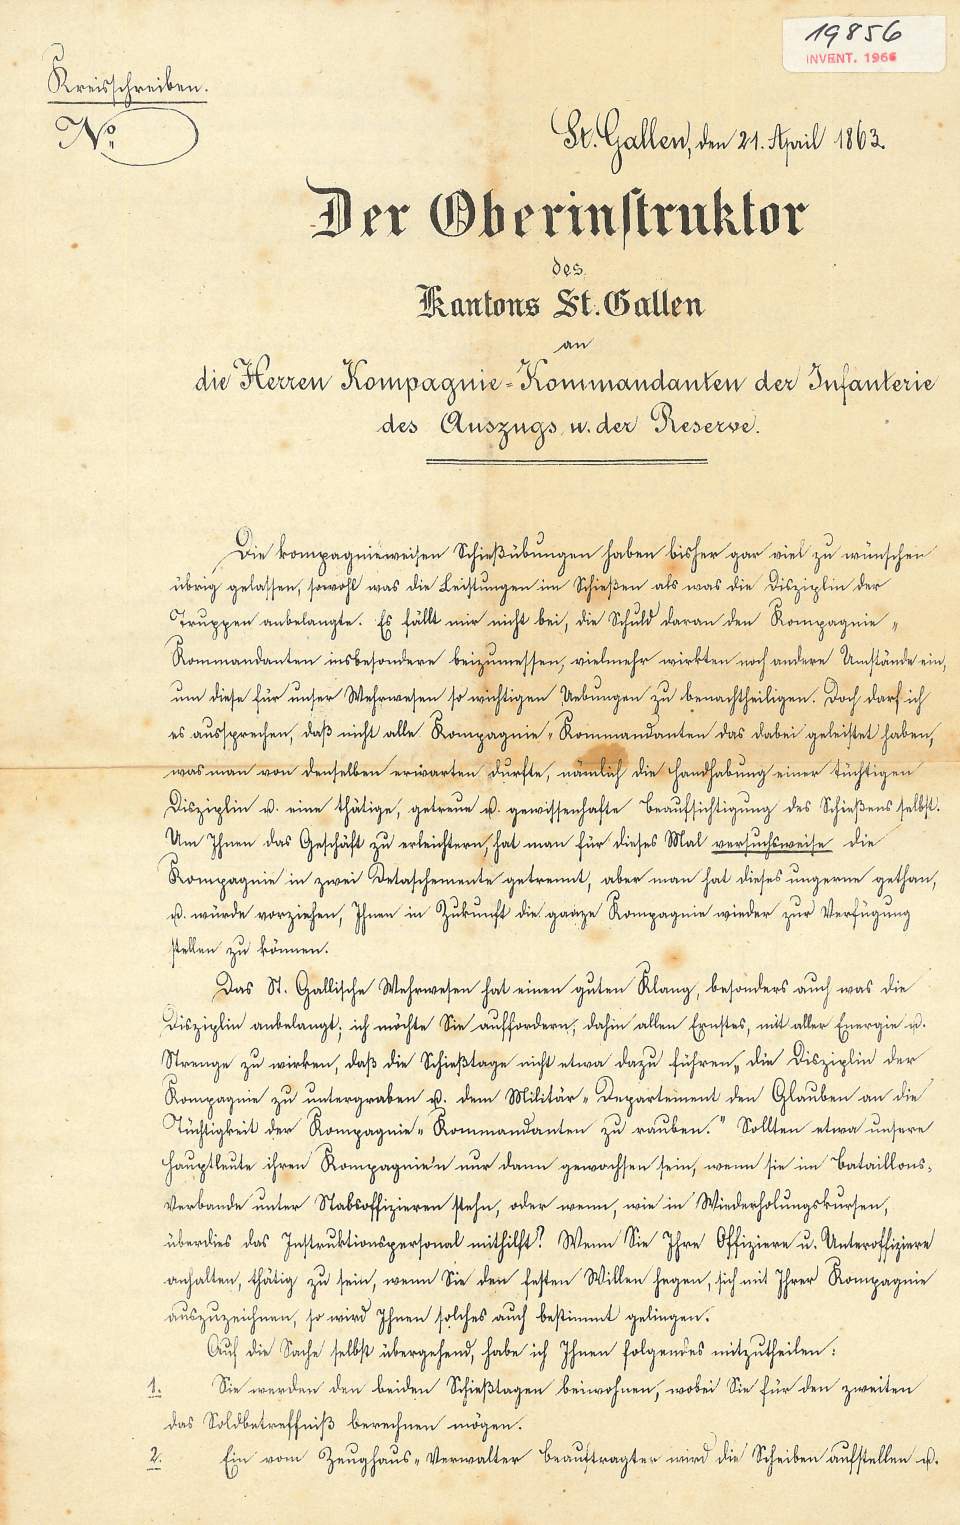 19856
INVENT. 1966
Kreisschreiben.
No
St. Gallen, den 21. April 1863.
Der Oberinstruktor
des
Kantons St. Gallen
an
die Herren Kompagnie-Kommandanten der Infanterie
des Auszugs u. der Reserve.
Die kompagnieweisen Schießübungen haben bisher gar viel zu wünschen
übrig gelassen, sowohl was die Leistungen im Schießen als was die Disziplin der
Truppen anbelangte. Es fällt mir nicht bei, die Schuld daran den Kompagnie-
Kommandanten insbesondere beizumessen, vielmehr wirkten noch andere Umstände ein,
um diese für unser Wehrwesen so wichtigen Uebungen zu benachtheiligen. Doch darf ich
es aussprechen, daß nicht alle Kompagnie-Kommandanten das dabei geleistet haben,
was man von denselben erwarten durfte, nämlich die Handhabung einer tüchtigen
Disziplin u. eine thätige, getreue u. gewissenhafte Beaufsichtigung des Schießens selbst.
Um Ihnen das Geschäft zu erleichtern, hat man für dieses Mal versuchsweise die
Kompagnie in zwei Detaschemente getrennt, aber man hat dieses ungerne gethan,
u. würde vorziehen, Ihnen in Zukunft die ganze Kompagnie wieder zur Verfügung
stellen zu können.
Das St. Gallische Wehrwesen hat einen guten Klang, besonders auch was die
Disziplin anbelangt; ich möchte Sie auffordern, dahin allen Ernstes, mit aller Energie u.
Strenge zu wirken, daß die Schießtage nicht etwa dazu führen „die Disziplin der
Kompagnie zu untergraben u. dem Militär-Departement den Glauben an die
Tüchtigkeit der Kompagnie-Kommandanten zu rauben." Sollten etwa unsere
Hauptleute ihren Kompagnie'n nur dann gewachsen sein, wenn sie im Bataillons-
Verbande unter Stabsoffizieren stehn, oder wenn, wie in Wiederholungskursen,
überdies das Instruktionspersonal mithilft? Wenn Sie Ihre Offiziere u. Unteroffiziere
anhalten, thätig zu sein, wenn Sie den festen Willen hegen, sich mit Ihrer Kompagnie
auszuzeichnen, so wird Ihnen solches auch bestimmt gelingen.
Auf die Sache selbst übergehend, habe ich Ihnen folgendes mitzutheilen:
1. Sie werden den beiden Schießtagen beiwohnen, wobei Sie für den zweiten
das Soldbetreffniß berechnen mögen.
2. Ein vom Zeughaus-Verwalter beauftragter wird die Scheiben aufstellen u.